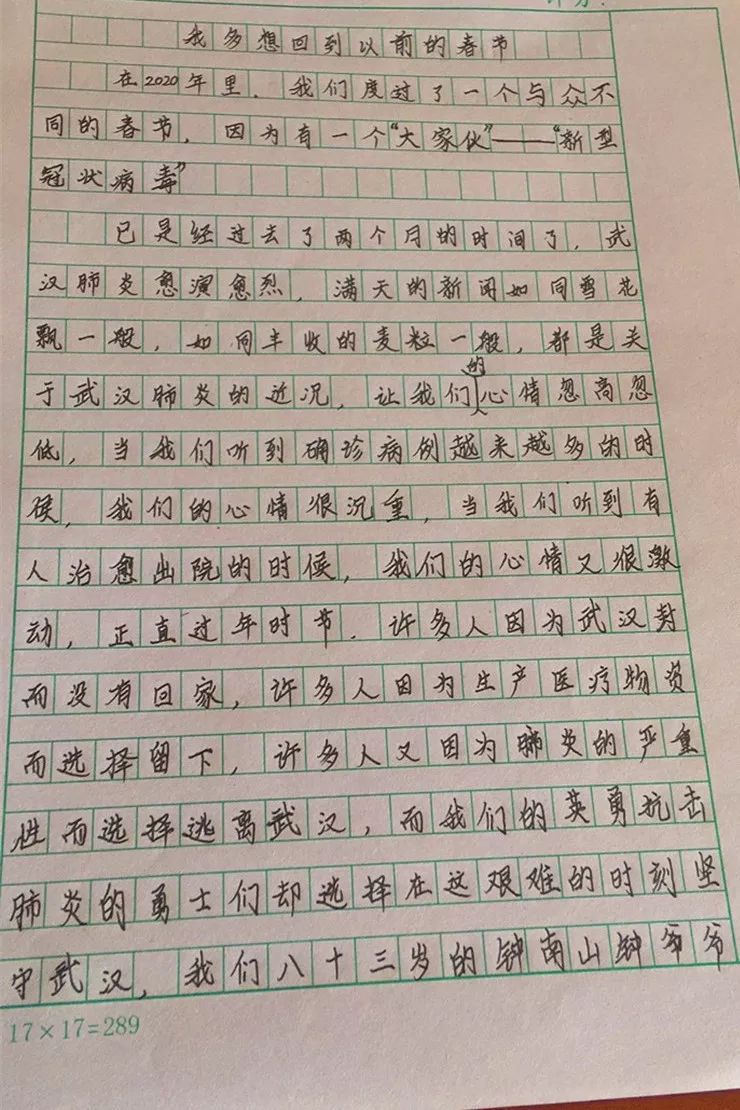 我多想回到以前的春节
在2020年里，我们度过了一个与众不
同的春节，因为有一个“大家伙”——“新型
冠状病毒”
已是经过去了两个月的时间了，武
汉肺炎愈演愈烈，满天的新闻如同雪花
飘一般，如同丰收的麦粒一般，都是关
于武汉肺炎的近况，让我们的心情忽高忽
低，当我们听到确诊病例越来越多的时
候，我们的心情很沉重，当我们听到有
人治愈出院的时候，我们的心情又很激
动，正直过年时节，许多人因为武汉封
而没有回家，许多人因为生产医疗物资
而选择留下，许多人又因为肺炎的严重
性而选择逃离武汉，而我们的英勇抗击
肺炎的勇士们却选择在这艰难的时刻坚
守武汉，我们八十三岁的钟南山钟爷爷
17×17=289